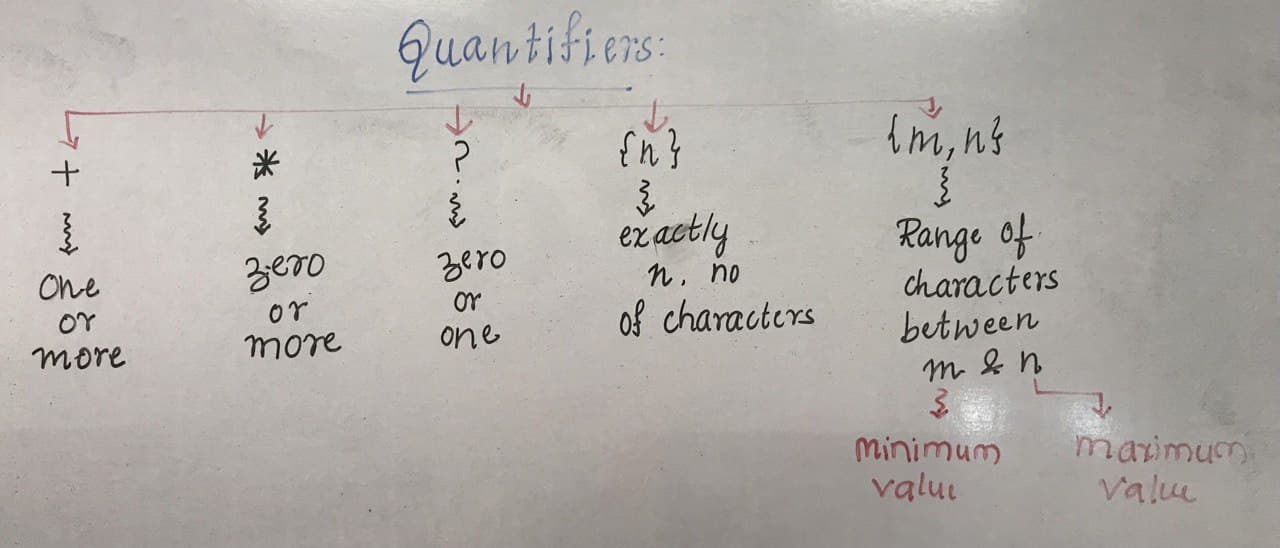 Quantifiers:
+
One
or
more
*
zero
or
more
?
zero
or
one
{n}
exactly
n. no
of characters
{m,n}
Range of
characters
between
m & n
minimum
value
maximum
value